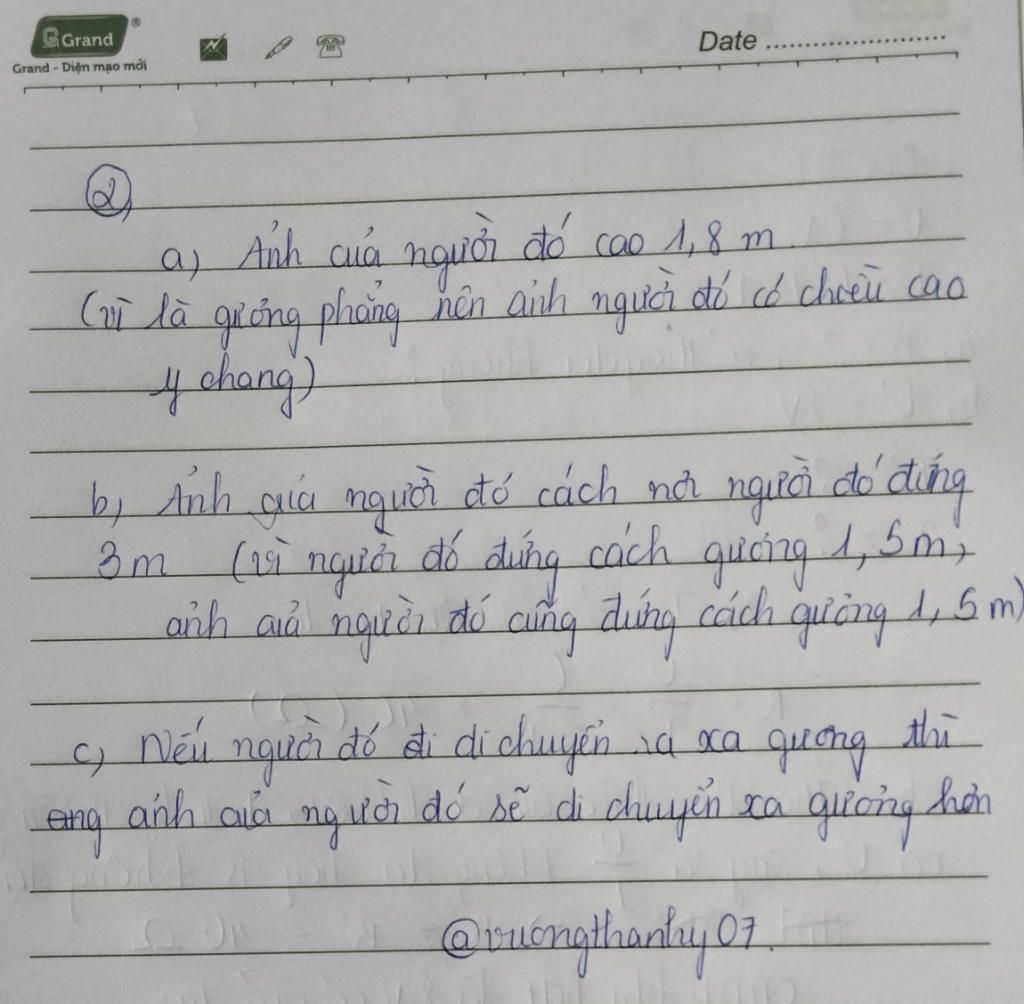 Grand®
Grand - Diện mạo mới
Date ........................
2)
a) Ảnh của người đó cao 1,8 m
(vì là gương phẳng nên ảnh người đó có chiều cao
y chang)
b) Ảnh của người đó cách nơi người đó đứng
3m (vì người đó đứng cách gương 1,5m,
ảnh của người đó cũng đứng cách gương 1,5m)
c) Nếu người đó đi di chuyển ra xa gương thì
ảnh của người đó sẽ di chuyển xa gương hơn
@vuongthanhy07.